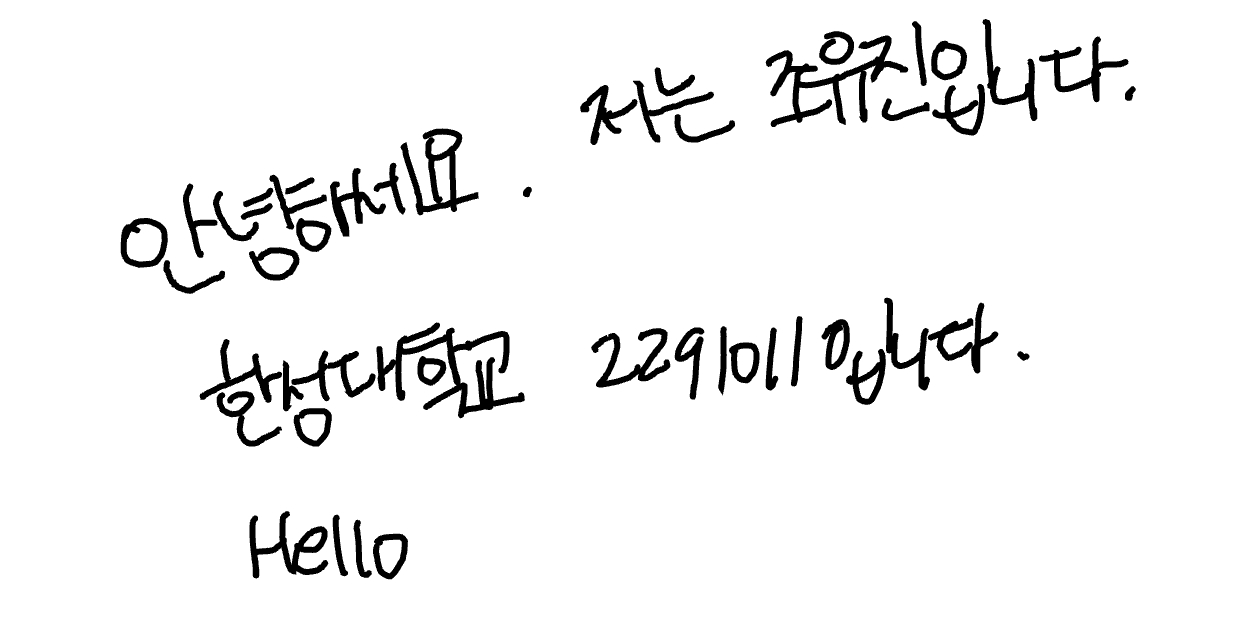 안녕하세요. 저는 조유진입니다.
한성대학교 2291011입니다.
Hello